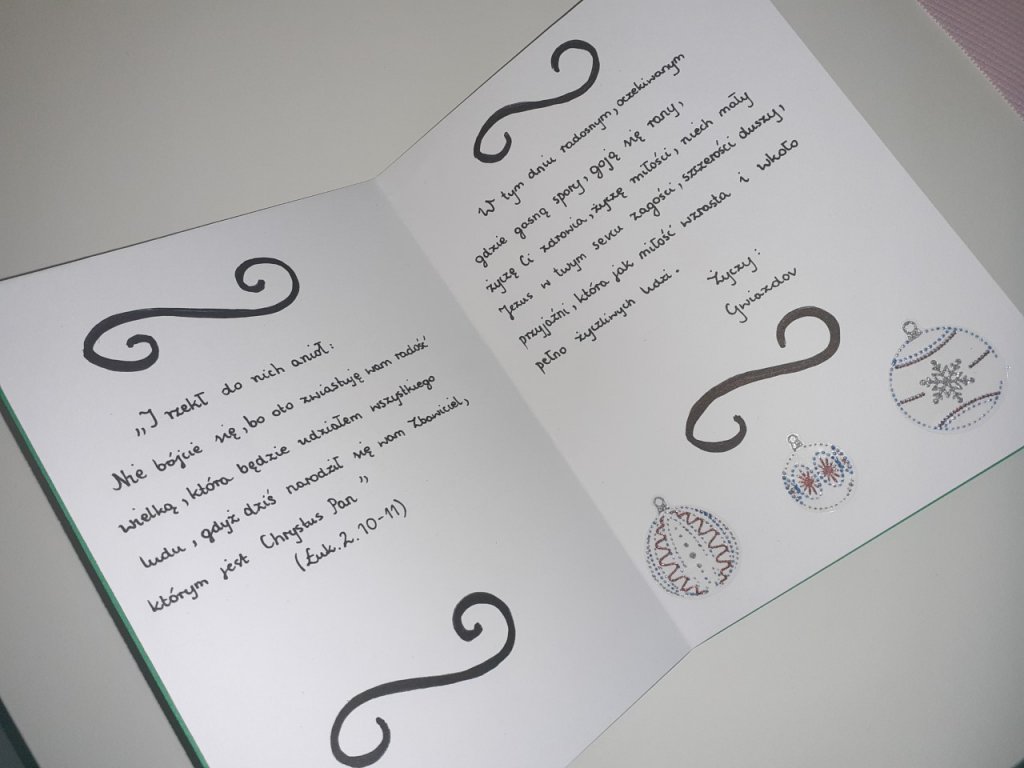 „I rzekł do nich anioł:
Nie bójcie się, bo oto zwiastuję wam radość
wielką, która będzie udziałem wszystkiego
ludu, gdyż dziś narodził się wam Zbawiciel,
którym jest Chrystus Pan"
(Łuk. 2. 10-11)
W tym dniu radosnym, oczekiwanym
gdzie gasną spory, goją się rany,
życzę Ci zdrowia, życzę miłości, niech mały
Jezus w twym sercu zagości, szczerości duszy,
przyjaźni, która jak miłość wzrasta i wkoło
pełno życzliwych ludzi.
Życzy:
Gwiazdov